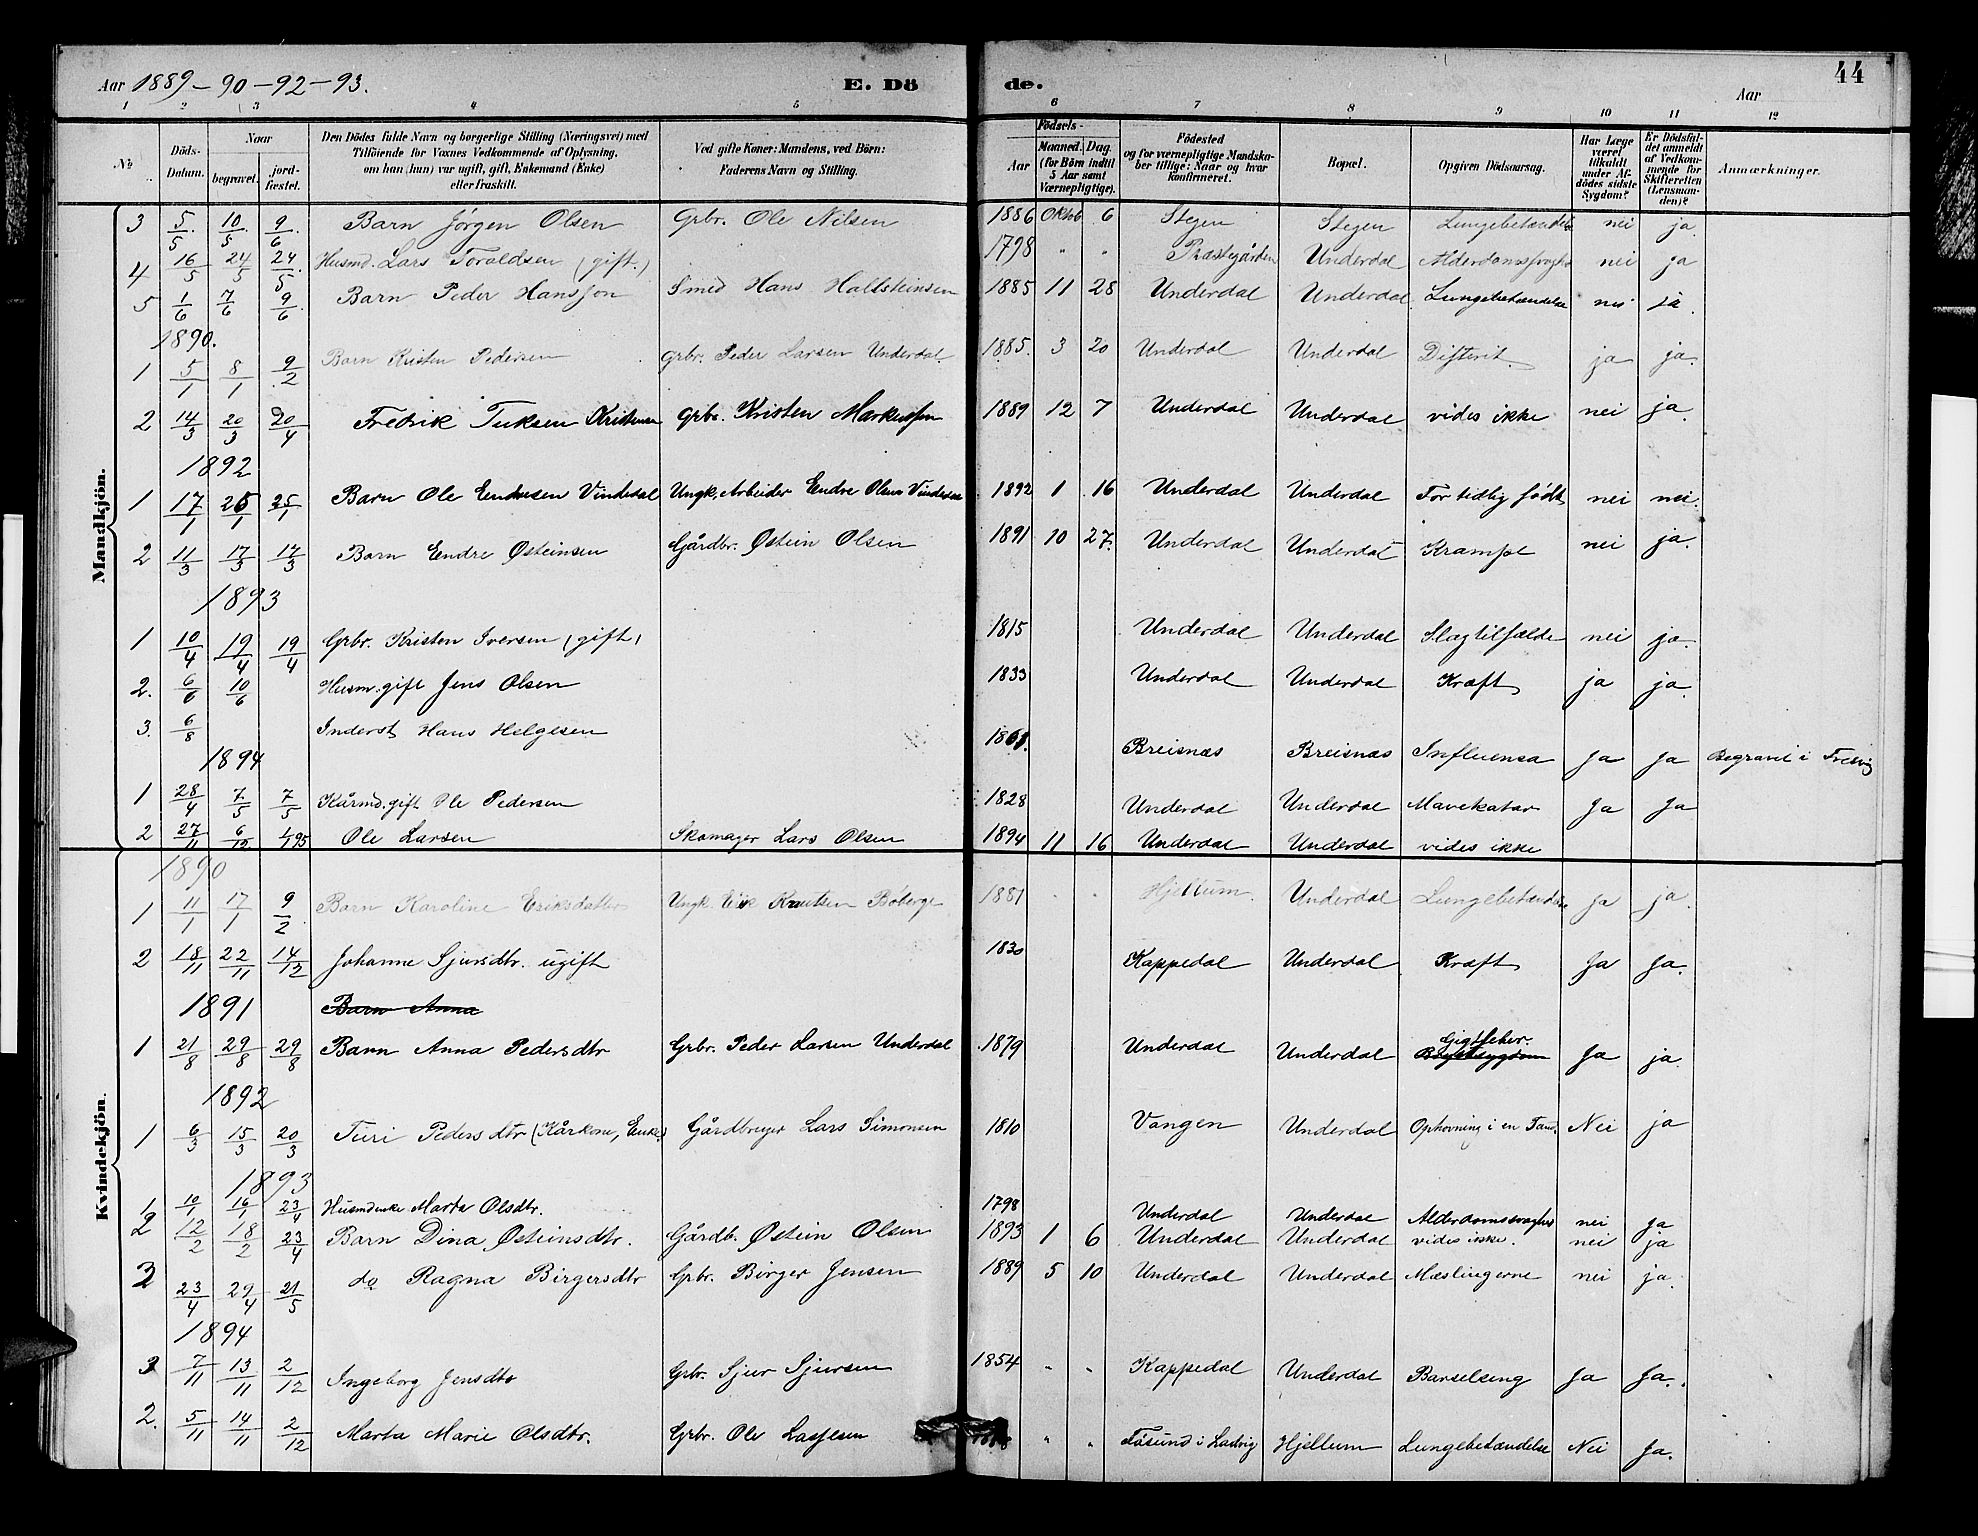 Aar 1889-90-92-93.
E. Dö
de.
Aar
44
1 2 3 4 5 6 7 8 9 10 11 12
№
Döds-Datum.
Naar
begravet.
jord-fæstet.
Den Dödes fulde Navn og borgerlige Stilling (Næringsvei) med
Tilföiende for Voxnes Vedkommende af Oplysning,
om han (hun) var ugift, gift, Enkemand (Enke)
eller fraskilt.
Ved gifte Koner: Mandens, ved Börn:
Faderens Navn og Stilling.
Födsels-
Aar
Maaned. Dag
(for Börn indtil
5 Aar samt
Værnepligtige).
Födested
og for værnepligtige Mandska-
ber tillige: Naar og hvor
konfirmeret.
Bopæl.
Opgiven Dödsaarsag.
Har Læge
været
tilkaldt
under Af-
dödes sidste
Sygdom?
Er Dödsfal-
det anmeldt
af Vedkom-
mende for
Skifteretten
(Lensman-
den)?
Anmærkninger.
Mandkjön.
3 5/5. 10/5. 9/6 Barn Jörgen Olsen Grbr. Ole Nilsen 1886 Oktob 6 Stegen Stegen Lungebetændelse nei ja.
4 16/5 24/5 24/5. Husmd. Lars Toraldsen (gift.) 1798 " " Præstegården Underdal Alderdomssvaghed nei ja
5 1/6 7/6 9/6 Barn Peder Hansson Smed Hans Hallsteinsen 1885 11 28 Underdal Underdal Lungebetændelse nei ja.
1890.
1 5/1 8/1 9/2 Barn Kristen Pedersen Grbr. Peder Larsen Underdal 1885. 3 20 Underdal Underdal Difterit ja ja.
2 14/3 20/3 20/4 Fredrik Kristensen Grbr. Kristen Markussen 1889 12 7 Underdal Underdal vides ikke nei ja.
1892
1 17/1 25/1 25/1 Barn Ole Endresen Vindedal Ungk. Arbeider Endre Olsen Vindedal 1892 1 16 Underdal Underdal For tidlig født nei nei.
2 11/3 17/3 17/3 Barn Endre Østeinsen Gårdbr. Østein Olsen 1891 10 27. Underdal Underdal Krampe nei ja.
1893
1 10/4 19/4 19/4 Grbr. Kristen Iversen (gift) 1815 Underdal Underdal Slagtilfælde nei ja.
2. 6/6 10/6 Husm. gift Jens Olsen 1833 Underdal Underdal Kræft ja ja.
3. 6/8 Inderst Hans Helgesen Breisnæs Breisnæs Influensa Ja Ja Begravet i Fresvig
1894
1 28/4 7/5 7/5 Kårmd. gift Ole Pedersen 1828 Underdal Underdal Mavekatar Ja Ja
2 27/11 6/12 1/1 95 Ole Larsen Skomager Lars Olsen 1894 11 16 Underdal Underdal vides ikke
Kvindekjön.
1890
1 11/1 17/1 9/2. Barn Karoline Eriksdatter Ungk. Erik Knutsen Böberge 1881 " " Hjellum. Underdal Lungebetændelse Ja ja.
2 18/11 22/11 14/12 Johanne Sjursdtr. ugift 1830 Kappedal Underdal Kræft Ja Ja.
1891 Barn Anna
1 21/8 29/8 29/8 Barn Anna Pedersdtr Grbr. Peder Larsen Underdal 1879 Underdal Underdal Gigtfeber. Ja ja.
1892
1 6/3 15/3 20/3 Turi Pedersdtr (Kårkone, Enke) Gårdbruger Lars Simonsen 1810 Vangen Underdal Ophovning i en Tand. Nei ja
1893
1 10/1 16/1 23/4 Husmdenke Marta Olsdtr. 1798 Underdal Underdal Alderdomssvaghed nei Ja
2 12/2 18/2 23/4 Barn Dina Østeinsdtr. Gårdb. Østein Olsen 1893 1 6 Underdal Underdal vides ikke. nei ja
3 23/4 29/4 21/5 do Ragna Birgersdtr Grbr. Birger Jensen 1889 5 10 Underdal Underdal Mæslingerne nei ja.
1894
3 7/11 13/11 2/12 Ingeborg Jensdtr Grbr. Sjur Sjursen 1854 " " Kappedal Underdal Barselseng Ja Ja.
2. 5/11 14/11 2/12 Marta Marie Olsdtr. Grbr. Ole " " i Ladvig Hjellum Lungebetændelse Nei Ja.